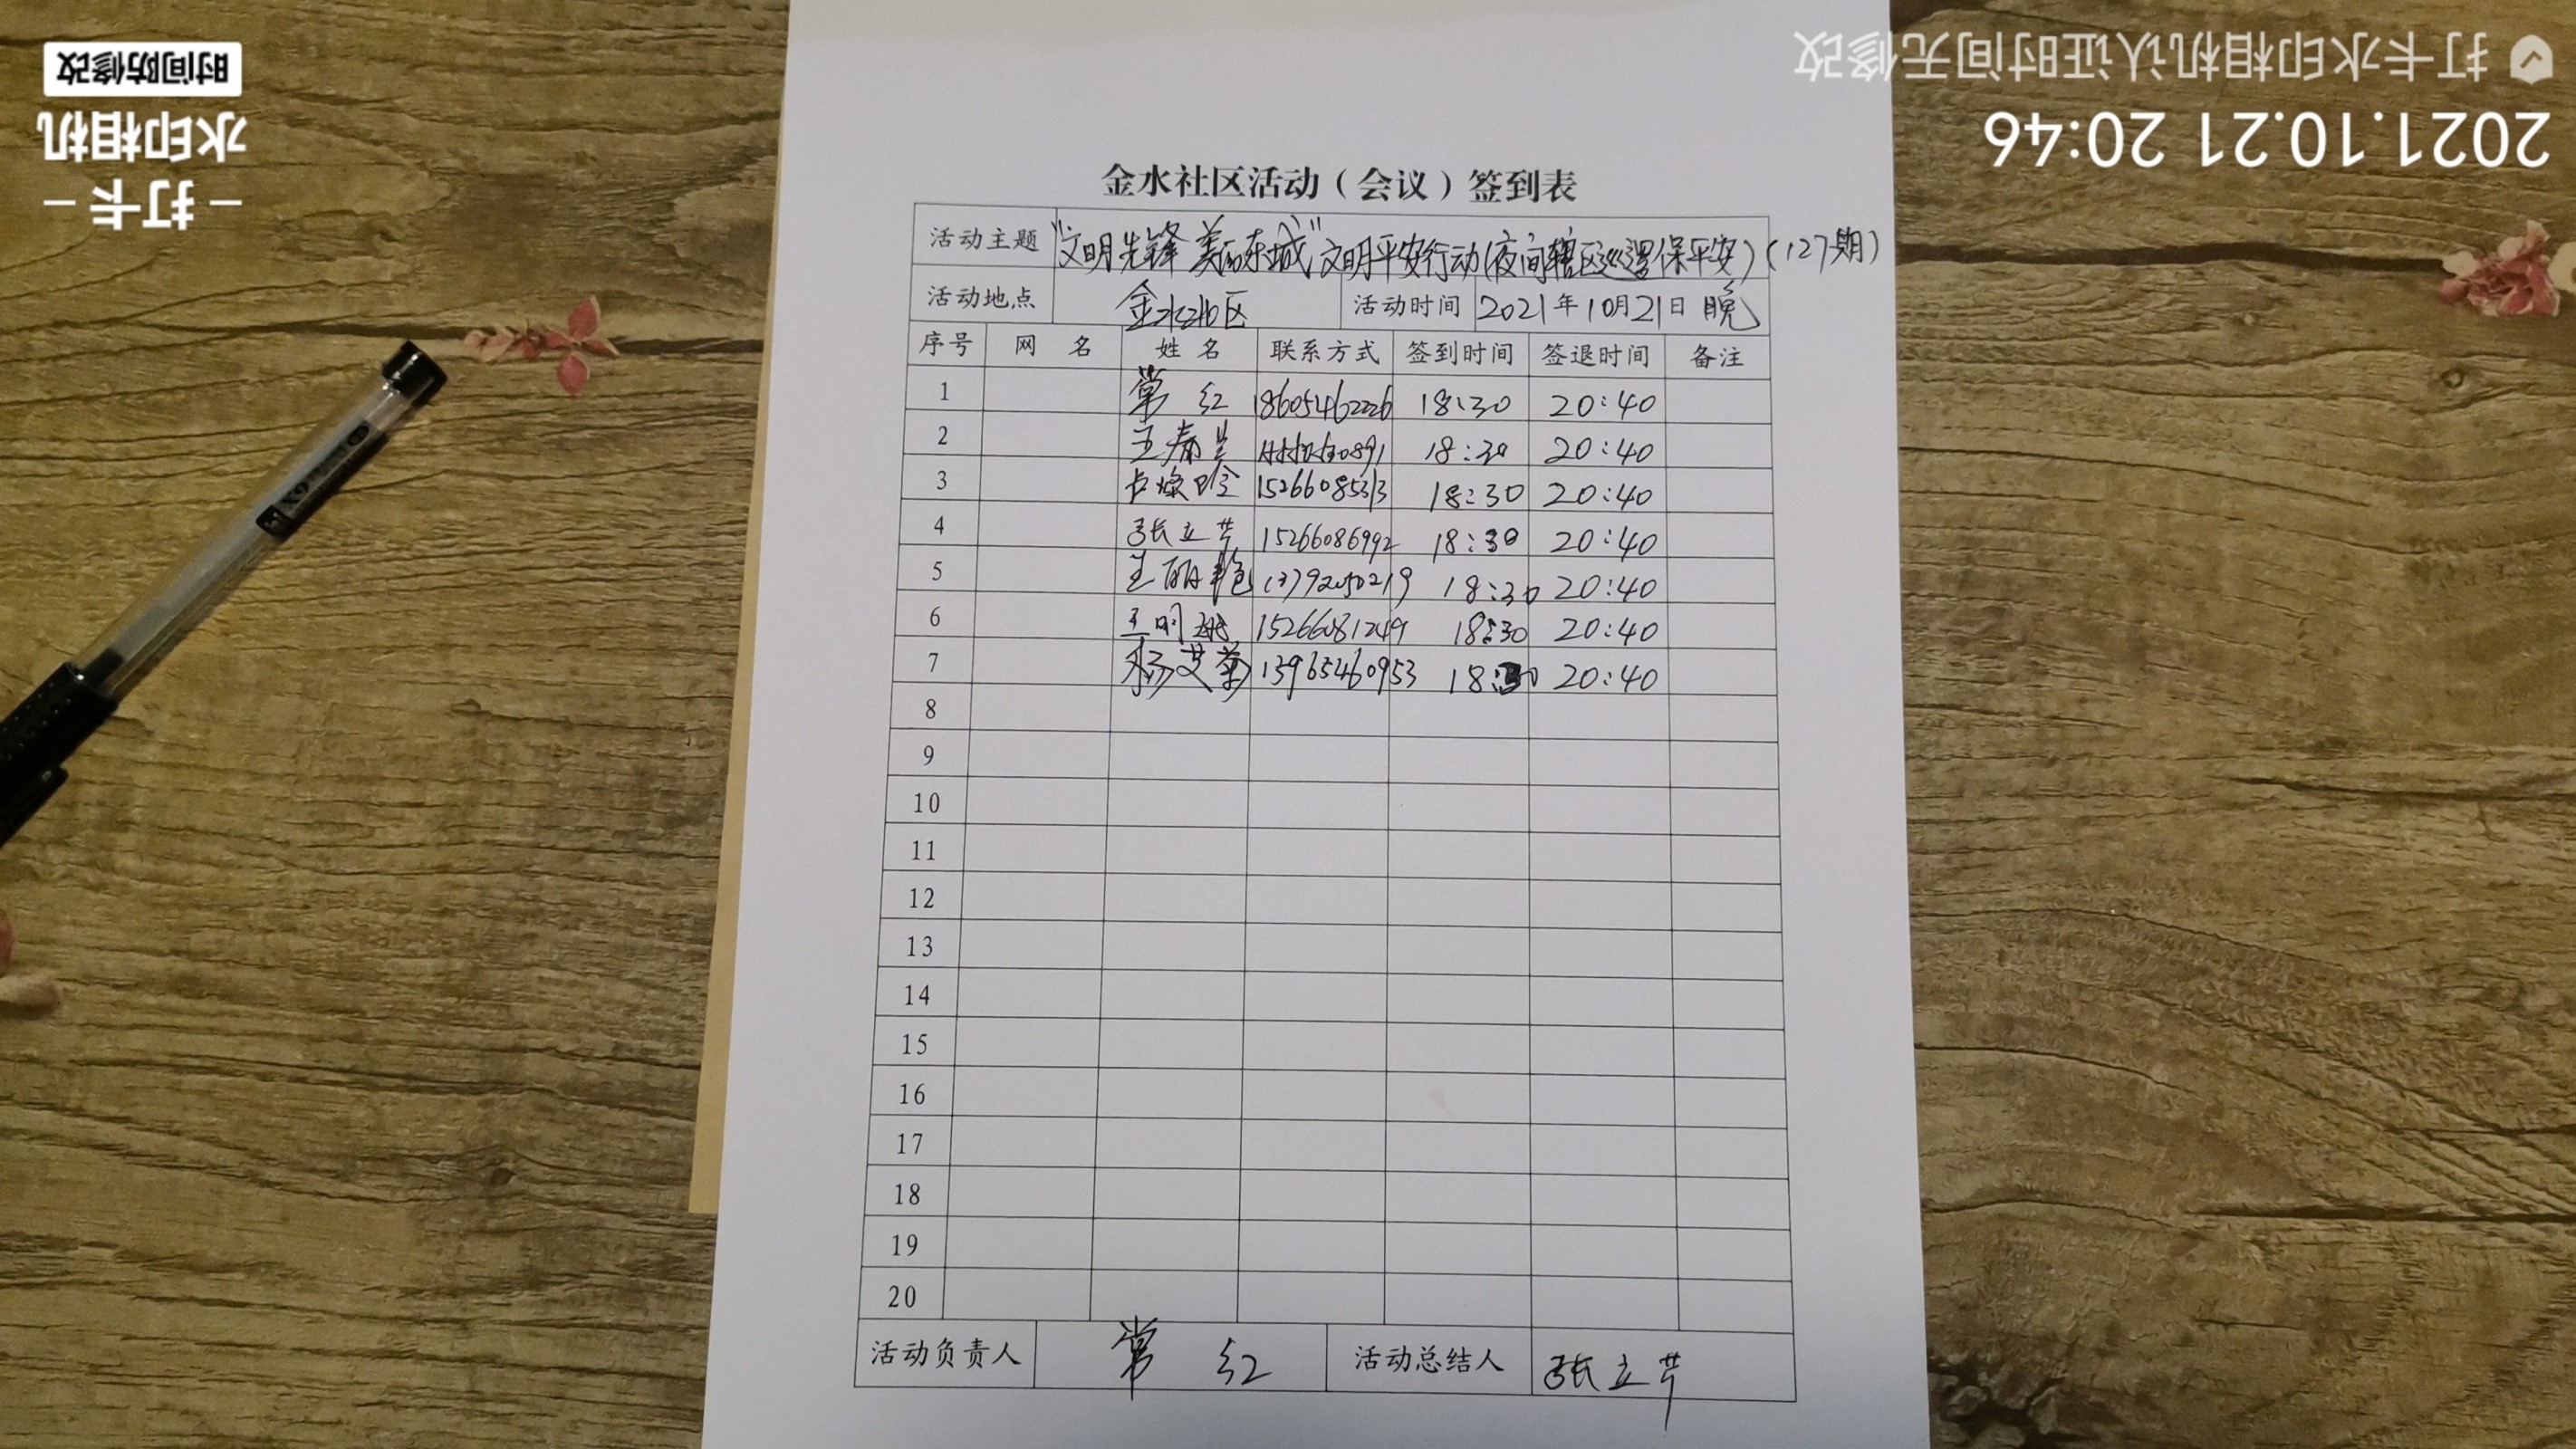 金水社区活动（会议）签到表
活动主题 "文明先锋 美丽东城"文明平安行动(夜间辖区巡逻保平安)(127期)
活动地点 金水社区 活动时间 2021年10月21日 晚
序号 网 名 姓 名 联系方式 签到时间 签退时间 备注
1 常 红 18605462226 18:30 20:40
2 王春兰 18:30 20:40
3 卢焕玲 15266085313 18:30 20:40
4 张立芹 15266086992 18:30 20:40
5 王丽艳 13792050219 18:30 20:40
6 王明 15266081249 18:30 20:40
7 杨艾菊 13965460953 18:30 20:40
8
9
10
11
12
13
14
15
16
17
18
19
20
活动负责人 常 红 活动总结人 张立芹
2021.10.21 20:46
打卡水印相机认证时间无修改
– 打卡 –
水印相机
时间防修改